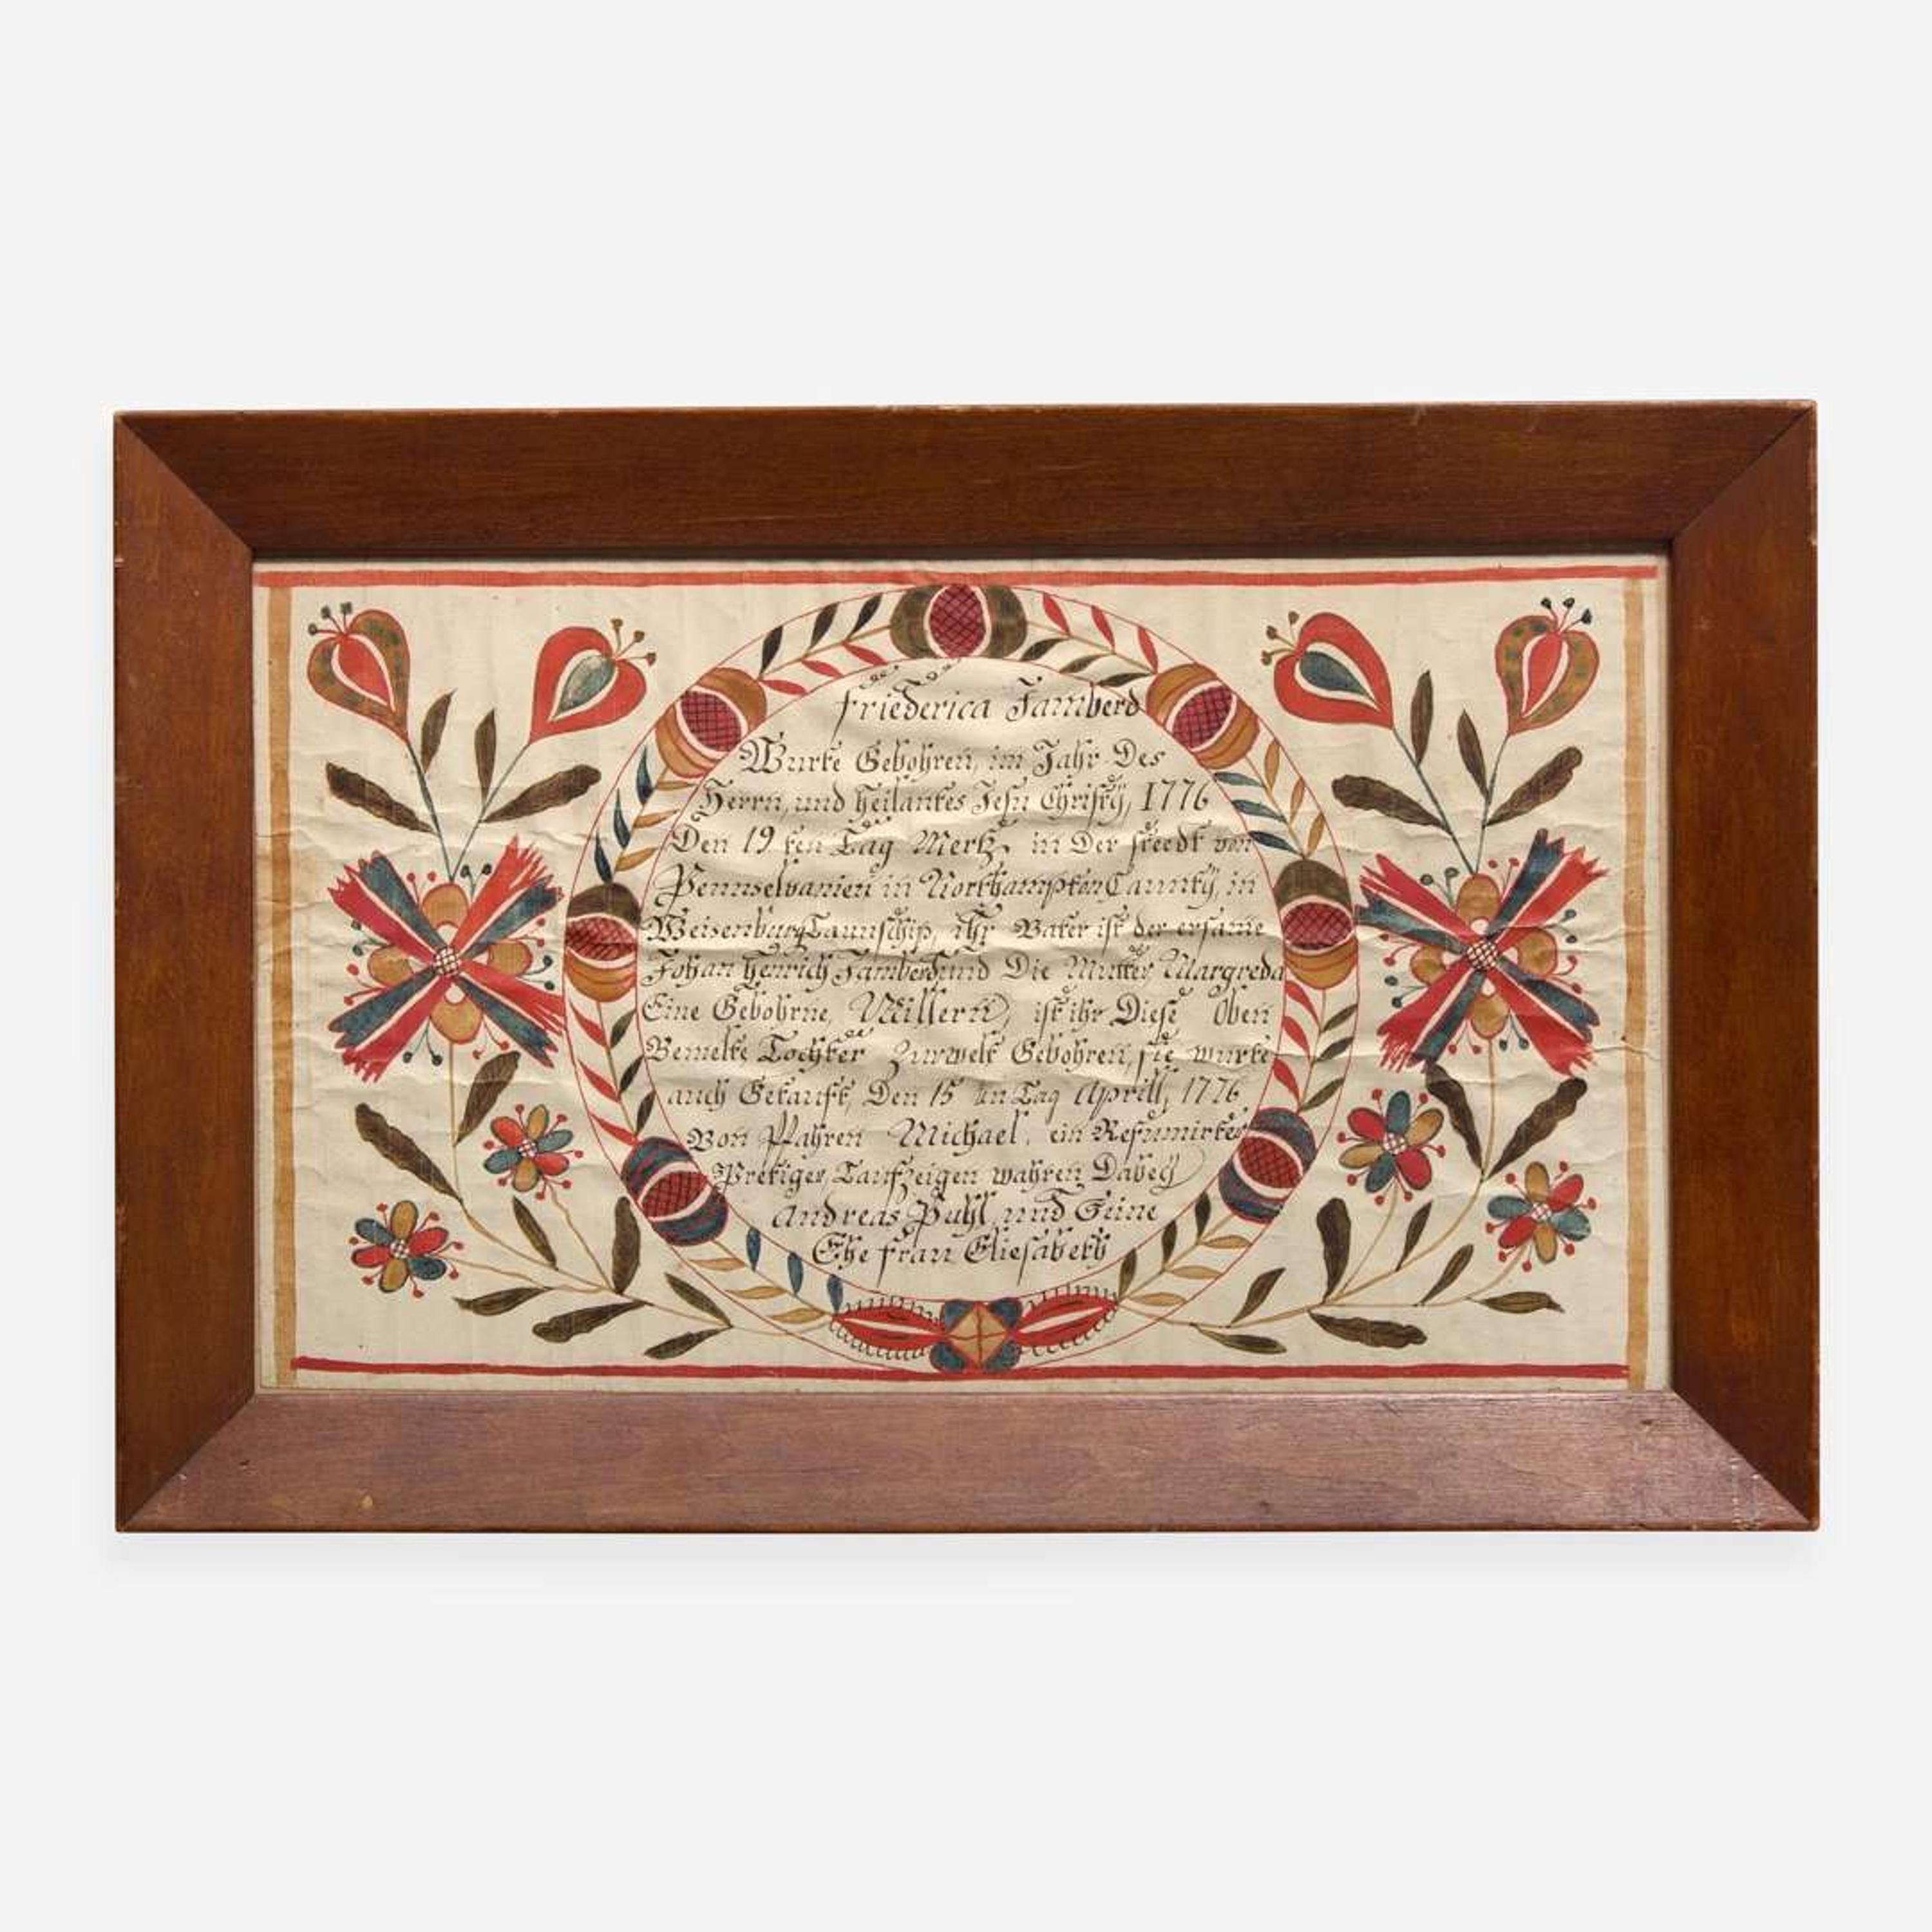 Friederica Jamberd
Wurte Gebohren, im Jahr Des
Herrn, und Heilantes Jesu Christÿ, 1776
Den 19 ten Tag Mertz, in Der steedt von
Pennselvanien in Northampton Caunty, in
Weisenburg Taunschip, Ihr Vater ist der ersame
Johan Henrich Jamberd und Die Mutter Margreda
Eine Gebohrne, Millern, ist ihr Diese Oben
Bemelte Tochter Zurwelt Gebohren, sie wurte
auch Getauft, Den 15 Tag Aprill, 1776
Von Pfahren Michael, ein Refumirter
Pretiger, Taufzeigen wahren Dabey
Andreas Puhl, und Seine
Ehe frau Eliesabeth